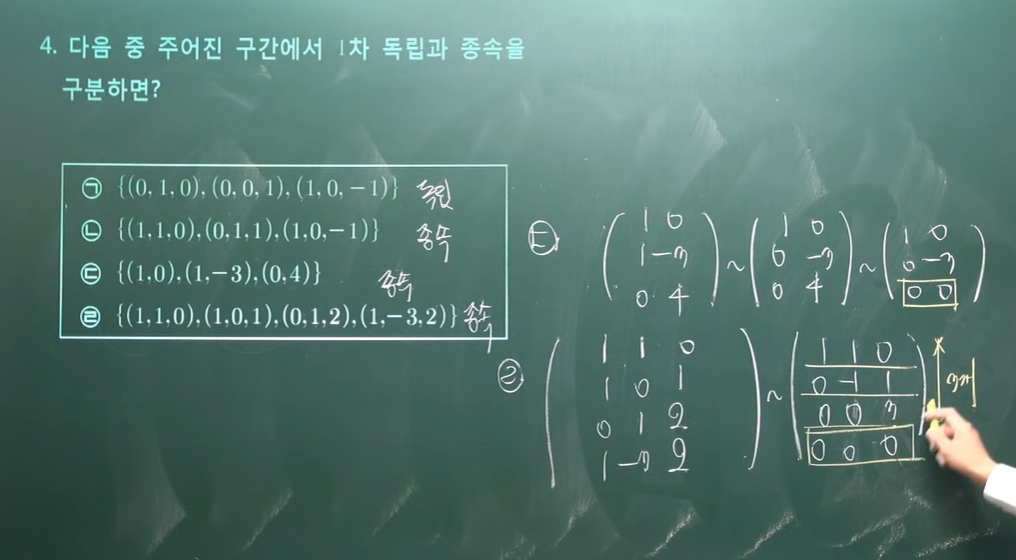 4. 다음 중 주어진 구간에서 1차 독립과 종속을
구분하면?
㉠ {(0, 1, 0), (0, 0, 1), (1, 0, −1)} 독립
㉡ {(1,1,0),(0,1,1),(1,0,−1)} 종속
㉢ {(1,0),(1,−3),(0,4)} 종속
㉣ {(1,1,0),(1,0,1),(0,1,2),(1,−3,2)} 종속
㉢ ( 1 0 ) ~ ( 1 0 ) ~ ( 1 0 )
1 −3 0 −3 0 −3
0 4 0 4 0 0
㉣ ( 1 1 0 ) ~ ( 1 1 0 )
1 0 1 0 −1 1 3개
0 1 2 0 0 3
1 −3 2 0 0 0